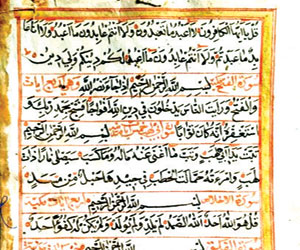 قل يا ايها الكافرون لا اعبد ما تعبدون ولا انتم عابدون ما اعبد ولا انا عا
بد ما عبدتم ولا انتم عابدون ما اعبد لكم دينكم ولي دين
بسم الله الرحمن الرحيم اذا جاء نصر الله
والفتح ورايت الناس يدخلون في دين الله افواجا فسبح بحمد ربك و
استغفره انه كان توابا بسم الله الرحمن الرحيم
تبت يدا ابي لهب وتب ما اغنى عنه ماله وما كسب سيصلى نارا ذات
لهب وامراته حمالة الحطب في جيدها حبل من مسد
سورة الاخلاص بسم الله الرحمن الرحيم
قل هو الله احد الله الصمد لم يلد ولم يولد ولم يكن له كفوا احد